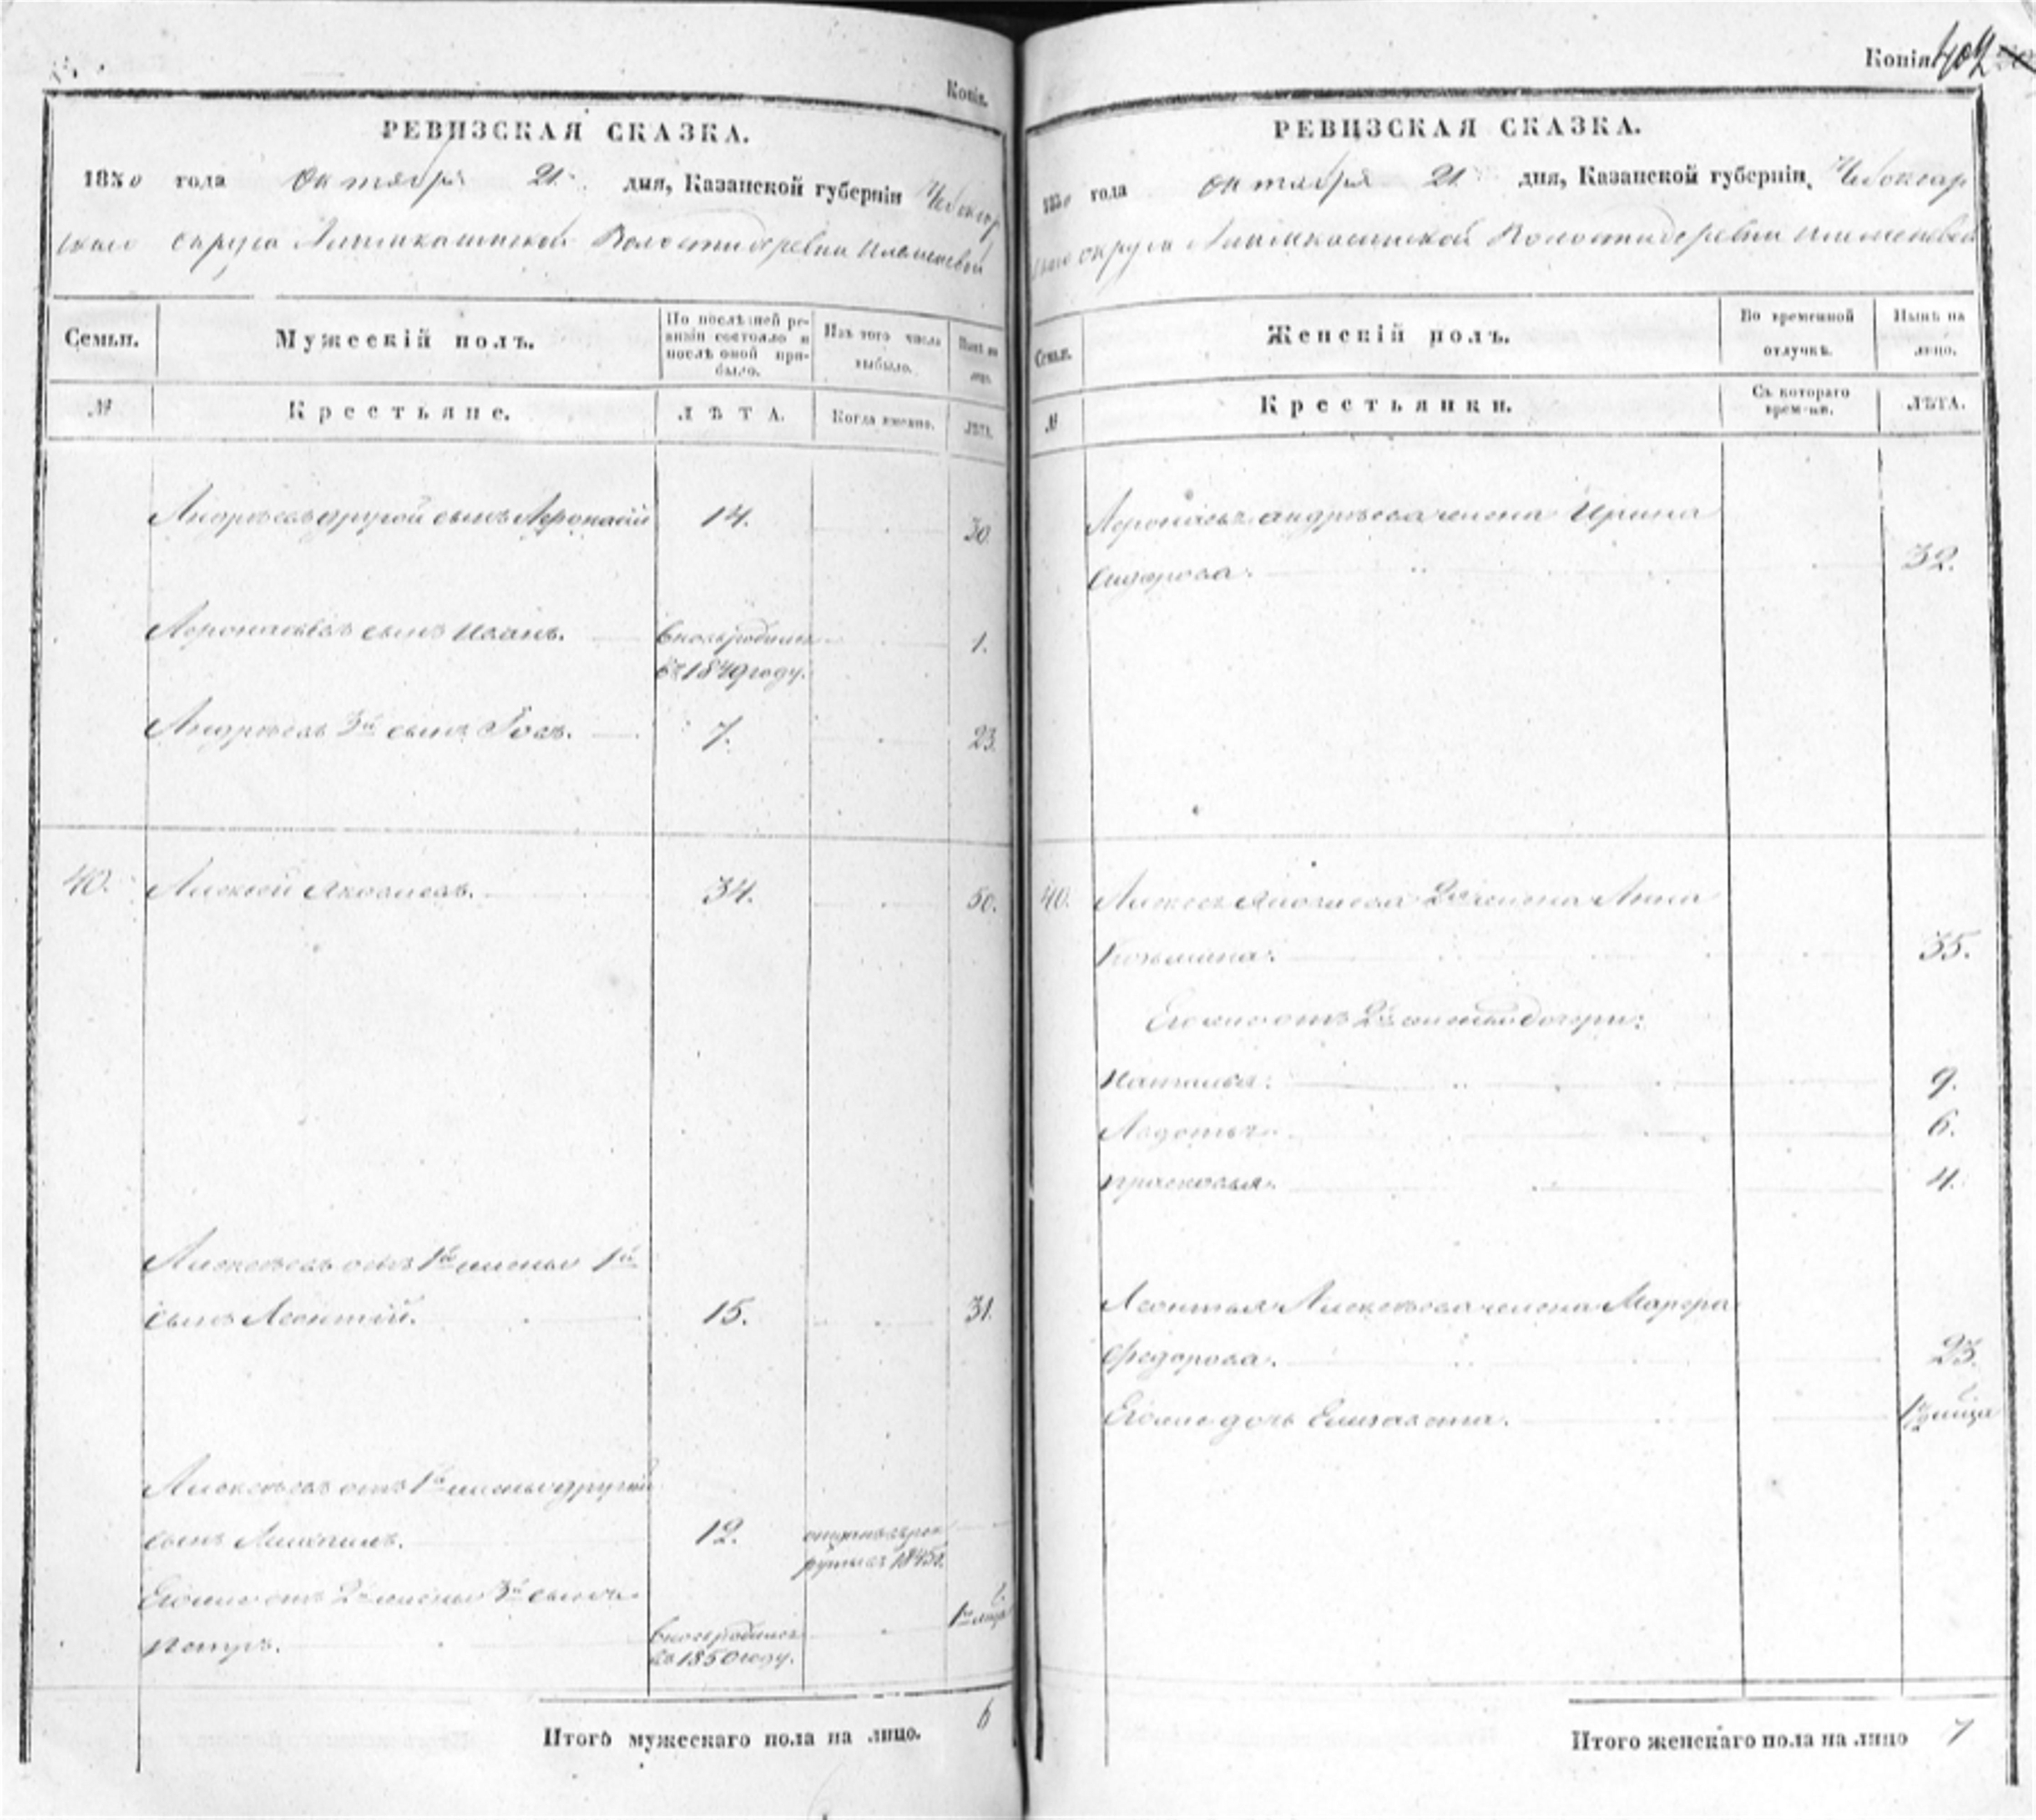 Копія.
РЕВИЗСКАЯ СКАЗКА.
1850 года Октября 21 дня, Казанской губерніи Чебоксар
скаго округа Волости деревни
Семьи. Мужескій полъ. По послѣдней ревизіи состояло и послѣ оной прибыло. Изъ того числа выбыло. Нынѣ на лицо.
№ Крестьяне. ЛѢТА. Когда именно. ЛѢТА.
Андреевъ другой сынъ Афонасій 14. 30.
Афонасьевъ сынъ Иванъ. вновь родился 1.
въ 1849 году.
Андреевъ 3й сынъ 7. 23.
40. Алексей Яковлевъ. 34. 50.
Алексеевъ отъ 1й жены 1й
сынъ Леонтій. 15. 31.
Алексеевъ отъ 1й жены другой
сынъ Михаилъ. 12. отданъ въ рек
руты въ 1845г.
Его же отъ 2й жены 3й сынъ
Петръ. вновь родился
въ 1850 году.
Итого мужескаго пола на лицо. 6
Копія 402
РЕВИЗСКАЯ СКАЗКА.
1850 года Октября 21 дня, Казанской губерніи, Чебоксар
скаго округа Волости деревни
Семьи. Женскій полъ. Во временной отлучкѣ. Нынѣ на лицо.
№ Крестьянки. Съ котораго времени. ЛѢТА.
Афонасья Андреева жена Ирина
Сидорова. 32.
40. Алексея Яковлева 2я жена Анна
Козьмина. 35.
Его же отъ 2й жены дочери:
Наталья. 9.
Авдотья. 6.
Прасковья. 4.
Леонтья Алексеева жена Марфа
Федорова. 23.
Его же дочь Елизавета.
Итого женскаго пола на лицо 7